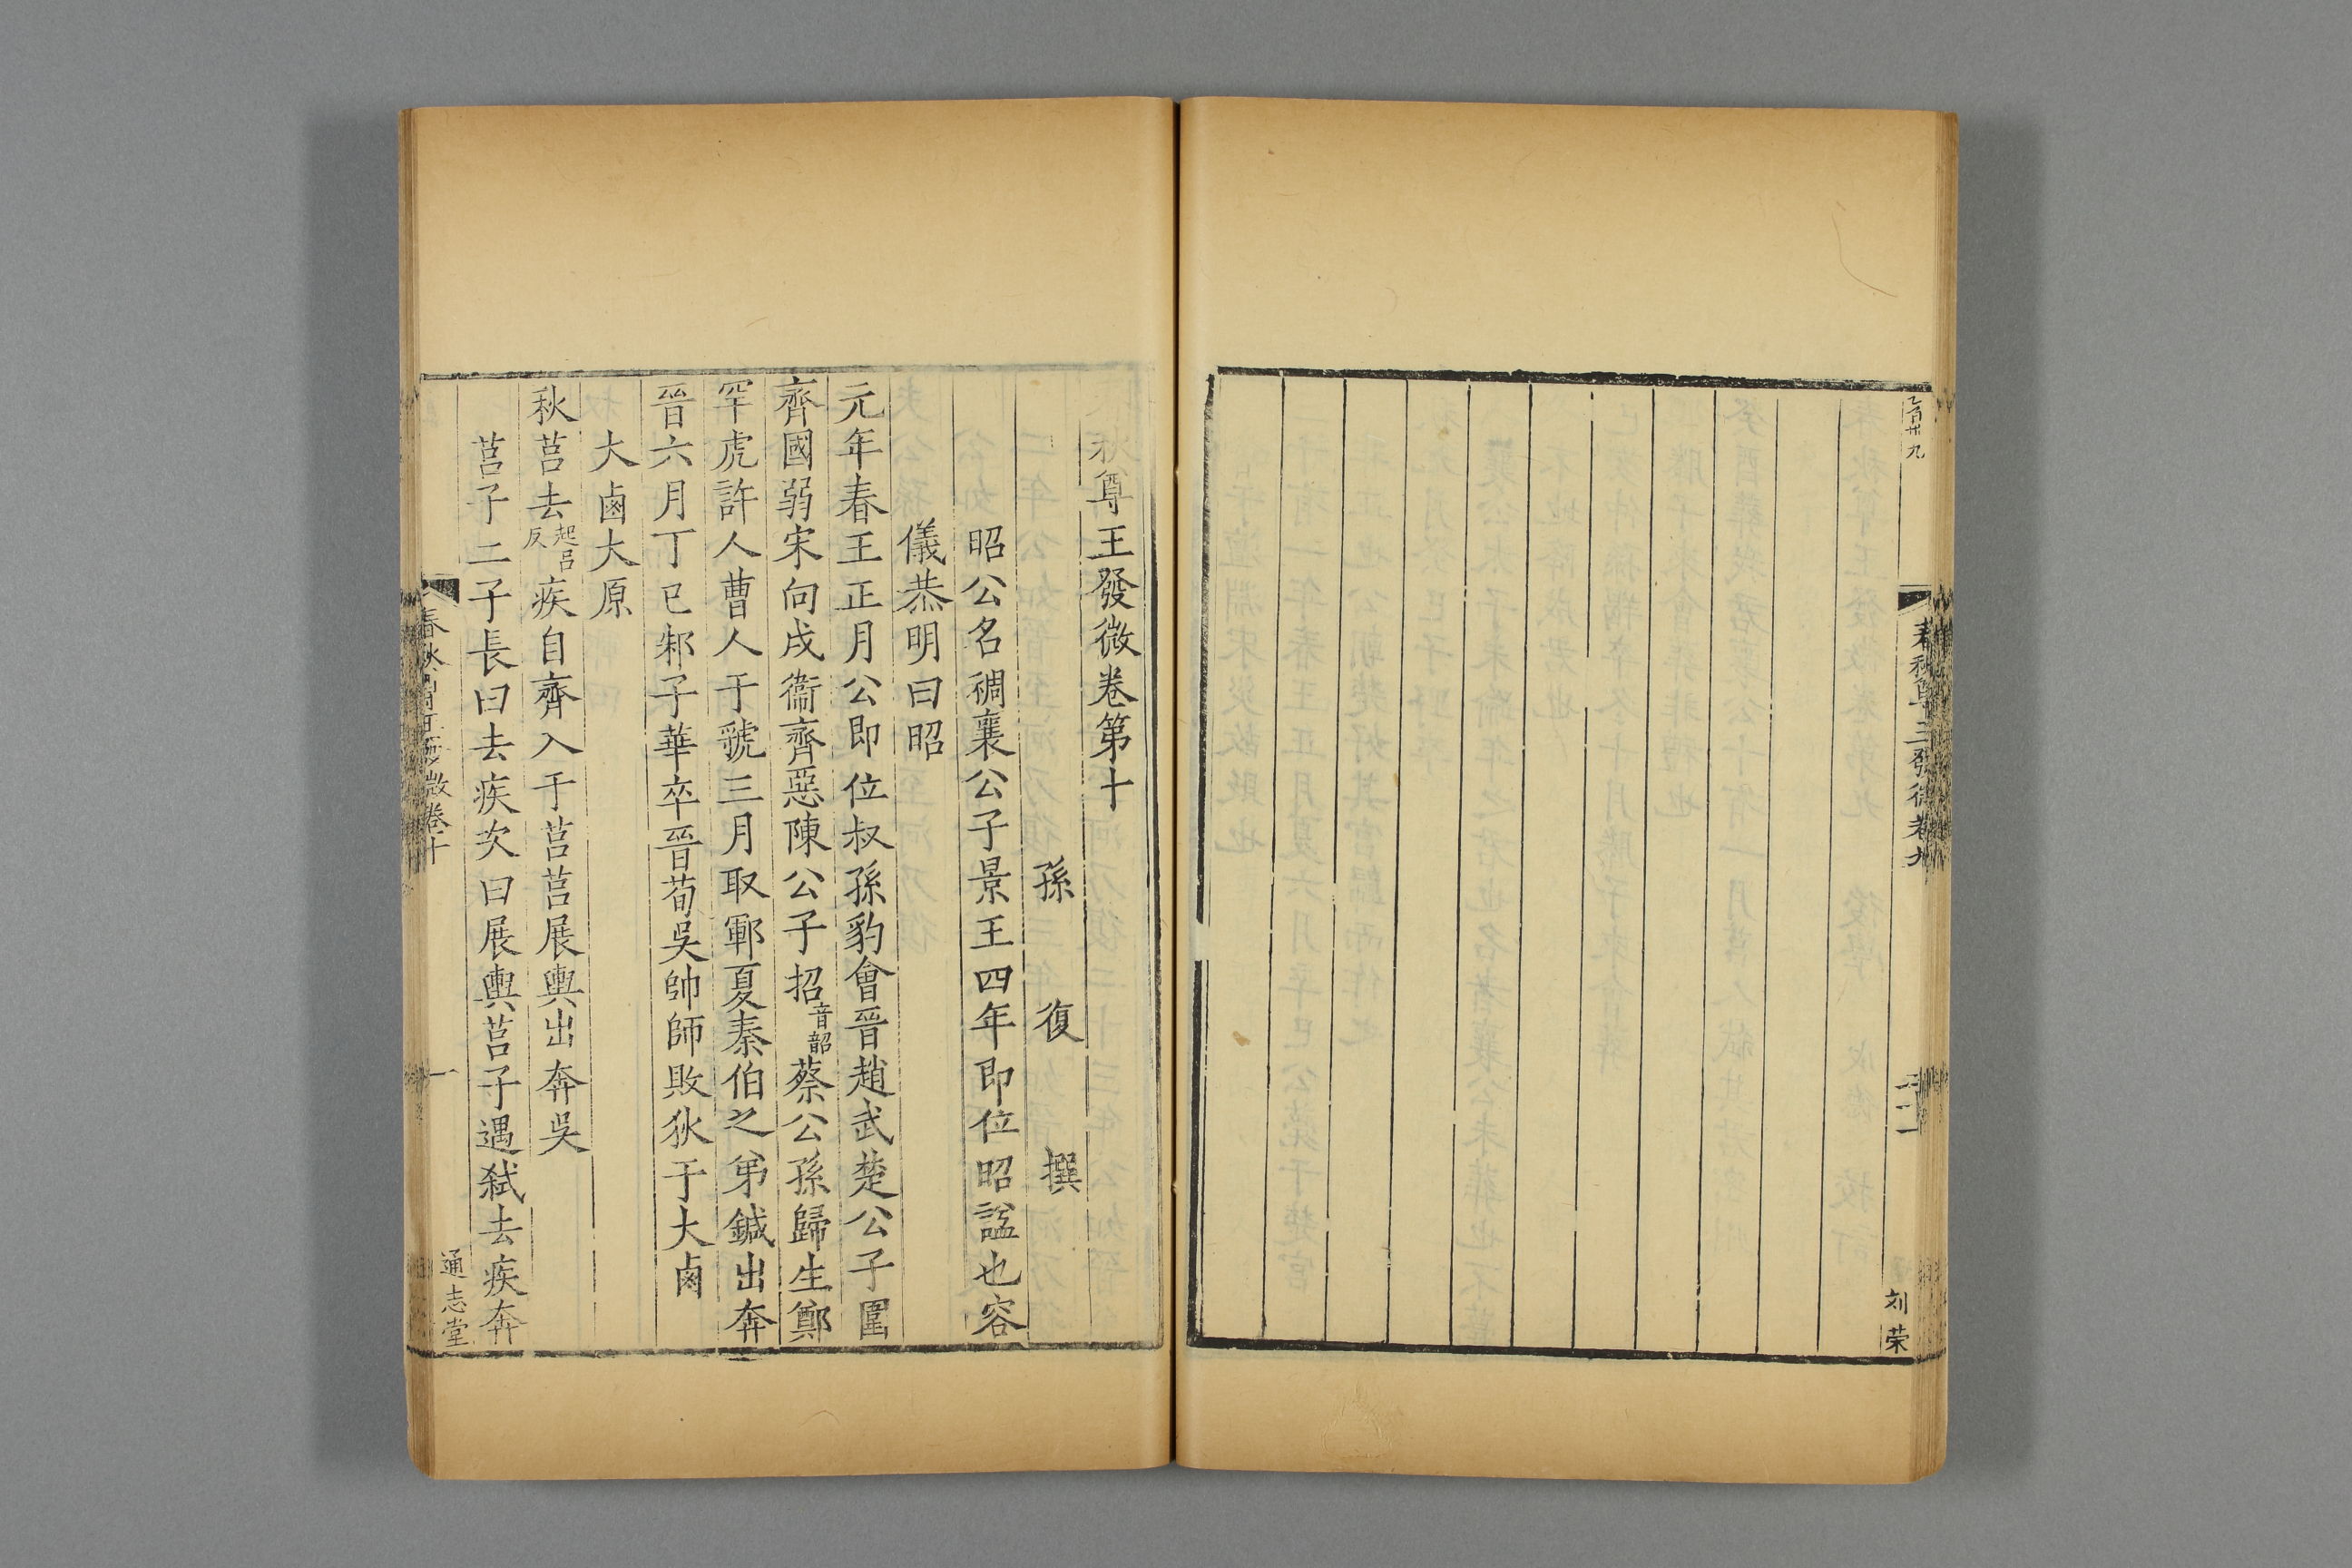 春秋尊王發微卷九
二十二
刘荣
秋尊王發微卷第十
孫　復　撰
昭公名稠襄公子景王四年即位昭諡也容
儀恭明曰昭
元年春王正月公即位叔孫豹會晉趙武楚公子圍
齊國弱宋向戌衞齊惡陳公子招音韶蔡公孫歸生鄭
罕虎許人曹人于虢三月取鄆夏秦伯之弟鍼出奔
晉六月丁巳邾子華卒晉荀吳帥師敗狄于大鹵
大鹵大原
秋莒去起呂反疾自齊入于莒莒展輿出奔吳
莒子二子長曰去疾次曰展輿莒子遇弑去疾奔
春秋尊王發微卷十
一
通志堂